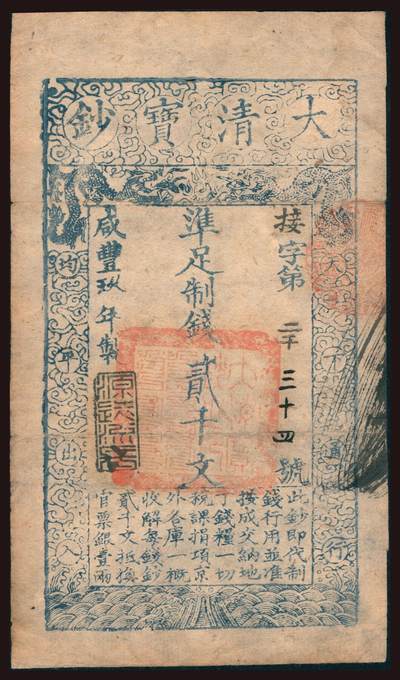 大清寶鈔
天下通行
接字第二千三十四號
準足制錢貳千文
咸豐玖年製
均平出入
此鈔即代制
錢行用並准
按成交納地
丁錢糧一切
稅課捐項京
外各庫一概
收解每錢鈔
貳千文抵換
官票銀壹兩